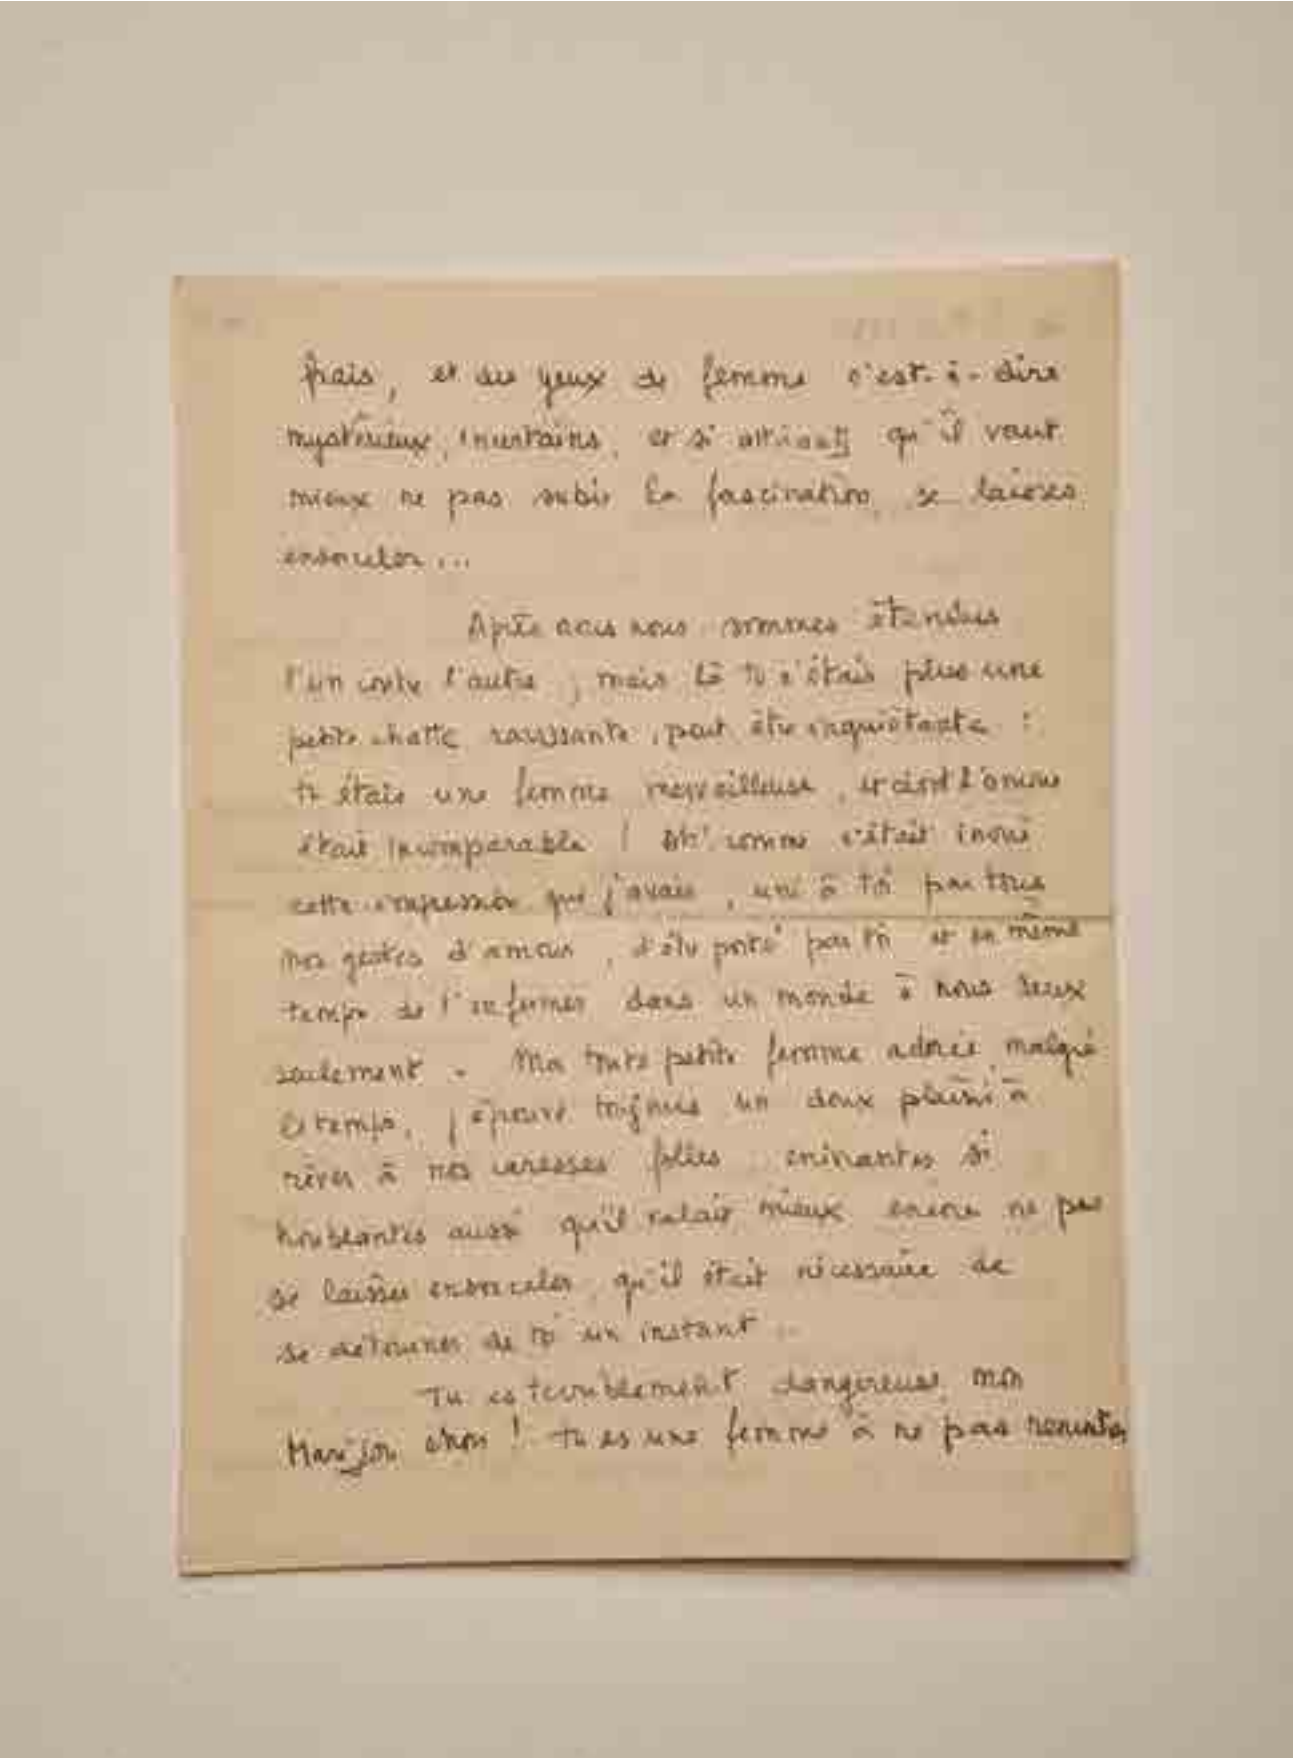 frais, et des yeux de femme c'est-à-dire
mystérieux, incertains, et si attirants qu'il vaut
mieux ne pas subir la fascination, se laisser
ensorceler...
Après nous sommes étendus
l'un contre l'autre, mais là tu n'étais plus une
petite chatte ravissante, peut être inquiétante :
tu étais une femme merveilleuse, et dont l'amour
était incomparable ! Ah! comme c'était inouï
cette impression que j'avais, uni à toi par tous
nos gestes d'amour, d'être porté par toi et en même
temps de t'enfermer dans un monde à nous deux
seulement. Ma toute petite femme adorée, malgré
le temps, j'éprouve toujours un doux plaisir à
rêver à nos caresses folles, enivrantes si
troublantes aussi qu'il valait mieux encore ne pas
se laisser ensorceler, qu'il était nécessaire de
se détourner de toi un instant...
Tu es terriblement dangereuse, mon
chon ! tu es une femme à ne pas rencontrer